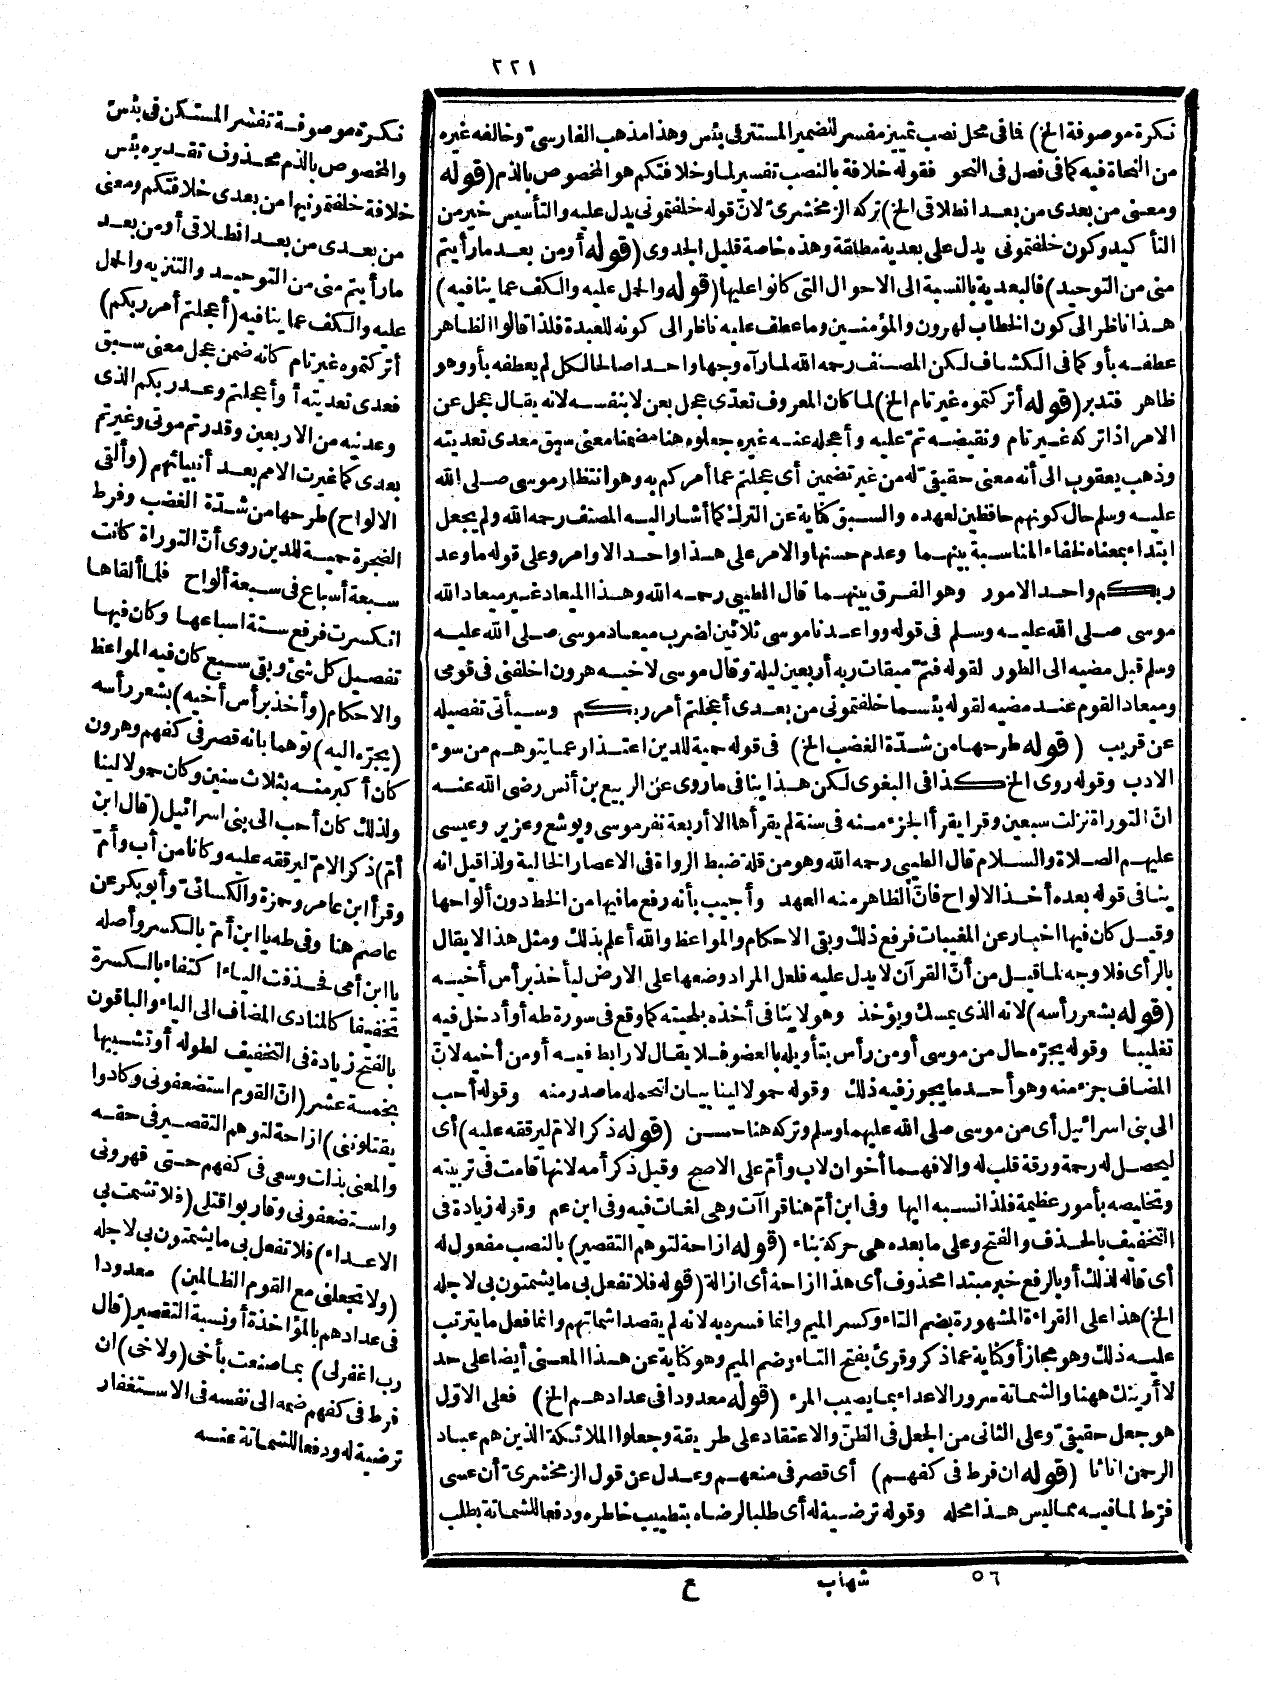 ٢٢١
نكرة موصوفة الخ) فما فى محل نصب تمييز مفسر للضمير المستتر فى بئس وهذا مذهب الفارسىّ وخالفه غيره
من النحاة فيه كما فى فصل فى النحو فقوله خلافة بالنصب تفسير لما وخلافتكم هو المخصوص بالذم (قوله
ومعنى من بعدى من بعد انطلاقى الخ) تركه الزمخشرىّ لانّ قوله خلفتمونى يدل عليه والتأسيس خير من
التأكيد وكون خلفتمونى يدل على بعدية مطلقة وهذه خاصة قليل الجدوى (قوله أو من بعد ما رأيتم
منى من التوحيد) فالبعدية بالنسبة الى الاحوال التى كانوا عليها (قوله والحمل عليه والكف عما ينافيه)
هذا ناظر الى كون الخطاب لهرون والمؤمنين وما عطف عليه ناظر الى كونه للعبدة فلذا قالوا الظاهر
عطفه بأو كما فى الكشاف لكن المصنف رحمه الله لما رآه وجها واحدا صالحا لكل لم يعطفه بأو وهو
ظاهر فتدبر (قوله أتركتموه غير تام الخ) لما كان المعروف تعدّى عجل بعن لا بنفسه لانه يقال عجل عن
الامر اذا تركه غير تام ونقيضه تمّ عليه وأعجله عنه غيره جعلوه هنا مضمنا معنى سبق معدى تعديته
وذهب يعقوب الى أنه معنى حقيقىّ له من غير تضمين أى عجلتم عما أمركم به وهو انتظار موسى صلى الله
عليه وسلم حال كونهم حافظين لعهده والسبق كناية عن الترك كما أشار اليه المصنف رحمه الله ولم يجعل
ابتداء بمعناه لخفاء المناسبة بينهما وعدم حسنها والامر على هذا واحد الاوامر وعلى قوله ما وعد
ربكم واحد الامور وهو الفرق بينهما قال الطيبى رحمه الله وهذا الميعاد غير ميعاد الله
موسى صلى الله عليه وسلم فى قوله وواعدنا موسى ثلاثين اضرب ميعاد موسى صلى الله عليه
وسلم قبل مضيه الى الطور لقوله فتمّ ميقات ربه أربعين ليلة وقال موسى لاخيه هرون اخلفنى فى قومى
وميعاد القوم عند مضيه لقوله بئسما خلفتمونى من بعدى أعجلتم أمر ربكم وسيأتى تفصيله
عن قريب (قوله طرحها من شدّة الغضب الخ) فى قوله حمية للدين اعتذار عما يتوهم من سوء
الادب وقوله روى الخ كذا فى البغوى لكن هذا ينافى ما روى عن الربيع بن أنس رضى الله عنه
انّ التوراة نزلت سبعين وقرا يقرأ الجزء منه فى سنة لم يقرأها الا أربعة نفر موسى ويوشع وعزير وعيسى
عليهم الصلاة والسلام قال الطيبى رحمه الله وهو من قلة ضبط الرواة فى الاعصار الخالية ولذا قيل انه
ينافى قوله بعده أخذ الالواح فانّ الظاهر منه العهد وأجيب بأنه رفع ما فيها من الخط دون ألواحها
وقيل كان فيها اخبار عن المغيبات فرفع ذلك وبقى الاحكام والمواعظ والله أعلم بذلك ومثل هذا لا يقال
بالرأى فلا وجه لما قيل من أنّ القرآن لا يدل عليه فلعل المراد وضعها على الارض ليأخذ برأس أخيه
(قوله بشعر رأسه) لانه الذى يمسك ويؤخذ وهو لا ينافى أخذه بلحيته كما وقع فى سورة طه أو أدخل فيه
تغليبا وقوله يجرّه حال من موسى أو من رأس بتأويله بالعضو فلا يقال لا رابط فيه أو من أخيه لانّ
المضاف جزء منه وهو أحد ما يجوز فيه ذلك وقوله حمولا لينا بيان لتحمله ما صدر منه وقوله أحب
الى بنى اسرائيل أى من موسى صلى الله عليهما وسلم وتركه هنا حسن (قوله ذكر الامّ ليرققه عليه) أى
ليحصل له رحمة ورقة قلب له والا فهما أخوان لاب وأمّ على الاصح وقيل ذكر أمه لانها قامت فى تربيته
وتخليصه بأمور عظيمة فلذا نسبه اليها وفى ابن أمّ هنا قراآت وهى لغات فيه وفى ابن عم وقوله زيادة فى
التخفيف بالحذف والفتح وعلى ما بعده هى حركة بناء (قوله ازاحة لتوهم التقصير) بالنصب مفعول له
أى قاله لذلك أو بالرفع خبر مبتدا محذوف أى هذا ازاحة أى ازالة (قوله فلا تفعل بى ما يشمتون بى لاجله
الخ) هذا على القراءة المشهورة بضم التاء وكسر الميم وانما فسره به لانه لم يقصد اشماتهم وانما فعل ما يترتب
عليه ذلك وهو مجاز أو كناية عما ذكر وقرئ بفتح التاء وضم الميم وهو كناية عن هذا المعنى أيضا على حد
لا أرينك ههنا والشماتة سرور الاعداء بما يصيب المرء (قوله معدودا فى عدادهم الخ) فعلى الاوّل
هو جعل حقيقىّ وعلى الثانى من الجعل فى الظنّ والاعتقاد على طريقة وجعلوا الملائكة الذين هم عباد
الرحمن اناثا (قوله ان فرط فى كفهم) أى قصر فى منعهم وعدل عن قول الزمخشرىّ أن عسى
فرّط لما فيه مما ليس هذا محله وقوله ترضية له أى طلبا لرضاه بتطييب خاطره ودفعا للشماتة بطلب
نكرة موصوفة تفسّر المستكن فى بئس
والمخصوص بالذم محذوف تقديره بئس
خلافة خلفتمونيها من بعدى خلافتكم ومعنى
من بعدى من بعد انطلاقى أو من بعد
ما رأيتم منى من التوحيد والتنزيه والحمل
عليه والكف عما ينافيه (أعجلتم أمر ربكم)
أتركتموه غير تام كأنه ضمن عجل معنى سبق
فعدى تعديته أو أعجلتم وعد ربكم الذى
وعدنيه من الاربعين وقدرتم موتى وغيرتم
بعدى كما غيرت الامم بعد أنبيائهم (وألقى
الالواح) طرحها من شدّة الغضب وفرط
الضجرة حمية للدين روى أنّ التوراة كانت
سبعة أسباع فى سبعة ألواح فلما ألقاها
انكسرت فرفع ستة اسباعها وكان فيها
تفصيل كل شئ وبقى سبع كان فيه المواعظ
والاحكام (وأخذ برأس أخيه) بشعر رأسه
(يجرّه اليه) توهما بانه قصر فى كفهم وهرون
كان أكبر منه بثلاث سنين وكان حمولا لينا
ولذلك كان أحب الى بنى اسرائيل (قال ابن
أمّ) ذكر الامّ ليرققه عليه وكانا من أب وأمّ
وقرأ ابن عامر وحمزة والكسائىّ وأبو بكر عن
عاصم هنا وفى طه يا ابن أمّ بالكسر وأصله
يا ابن أمى فحذفت الياء اكتفاء بالكسرة
تخفيفا كالمنادى المضاف الى الياء والباقون
بالفتح زيادة فى التخفيف لطوله أو تشبيها
بخمسة عشر (انّ القوم استضعفونى وكادوا
يقتلوننى) ازاحة لتوهم التقصير فى حقه
والمعنى بذلت وسعى فى كفهم حتى قهرونى
واستضعفونى وقاربوا قتلى (فلا تشمت بى
الاعداء) فلا تفعل بى ما يشمتون بى لاجله
(ولا تجعلنى مع القوم الظالمين) معدودا
فى عدادهم بالمؤاخذة أو نسبة التقصير (قال
رب اغفر لى) بما صنعت بأخى (ولاخى) ان
فرط فى كفهم ضمه الى نفسه فى الاستغفار
ترضية له ودفعا للشماتة عنه
٥٦ شهاب ع